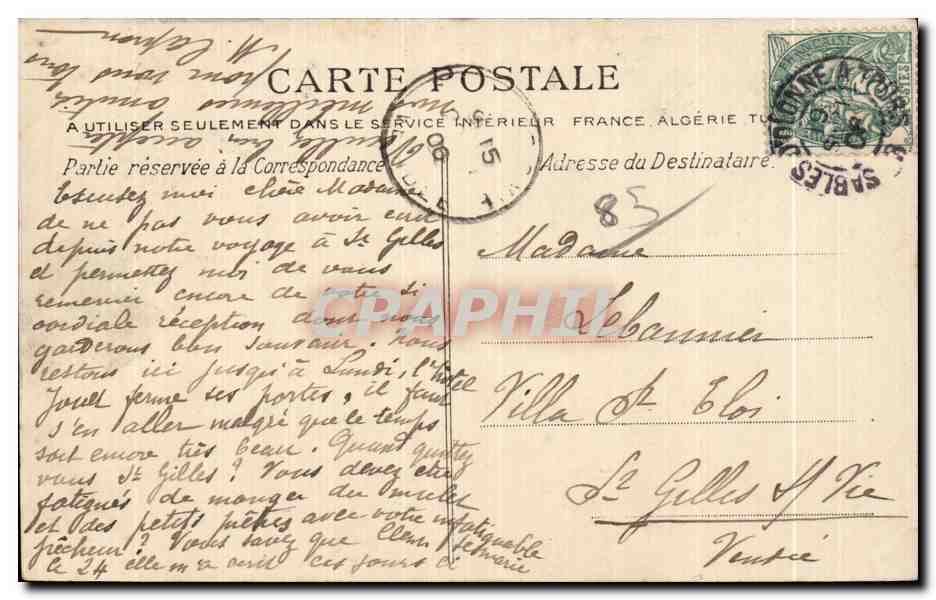 CARTE POSTALE
A UTILISER SEULEMENT DANS LE SERVICE INTÉRIEUR FRANCE, ALGÉRIE TU
Partie réservée à la Correspondance
Adresse du Destinataire
SABLES D'OLONNE A TOURS
15
06
85
Excusez moi chère Madame
de ne pas vous avoir écrit
depuis notre voyage à St Gilles
et permettez moi de vous
remercier encore de votre si
cordiale réception dont nous
garderons bon souvenir. Nous
restons ici jusqu'à Lundi, l'hôtel
Jouet ferme ses portes, il faut
s'en aller malgré que le temps
soit encore très beau. Quand quittez
vous St Gilles? Vous devez être
fatigués de manger du mulet
et des petits prêtres avec votre infatigable
pêcheur? Vous savez que
le 24 elle m'a écrit ces jours ci
Veuillez bien accepter
nos meilleures amitiés
pour vous tous
M.
Madame
Lebaunier
Villa St Eloi
St Gilles s/ Vie
Vendée
CPAPHIL